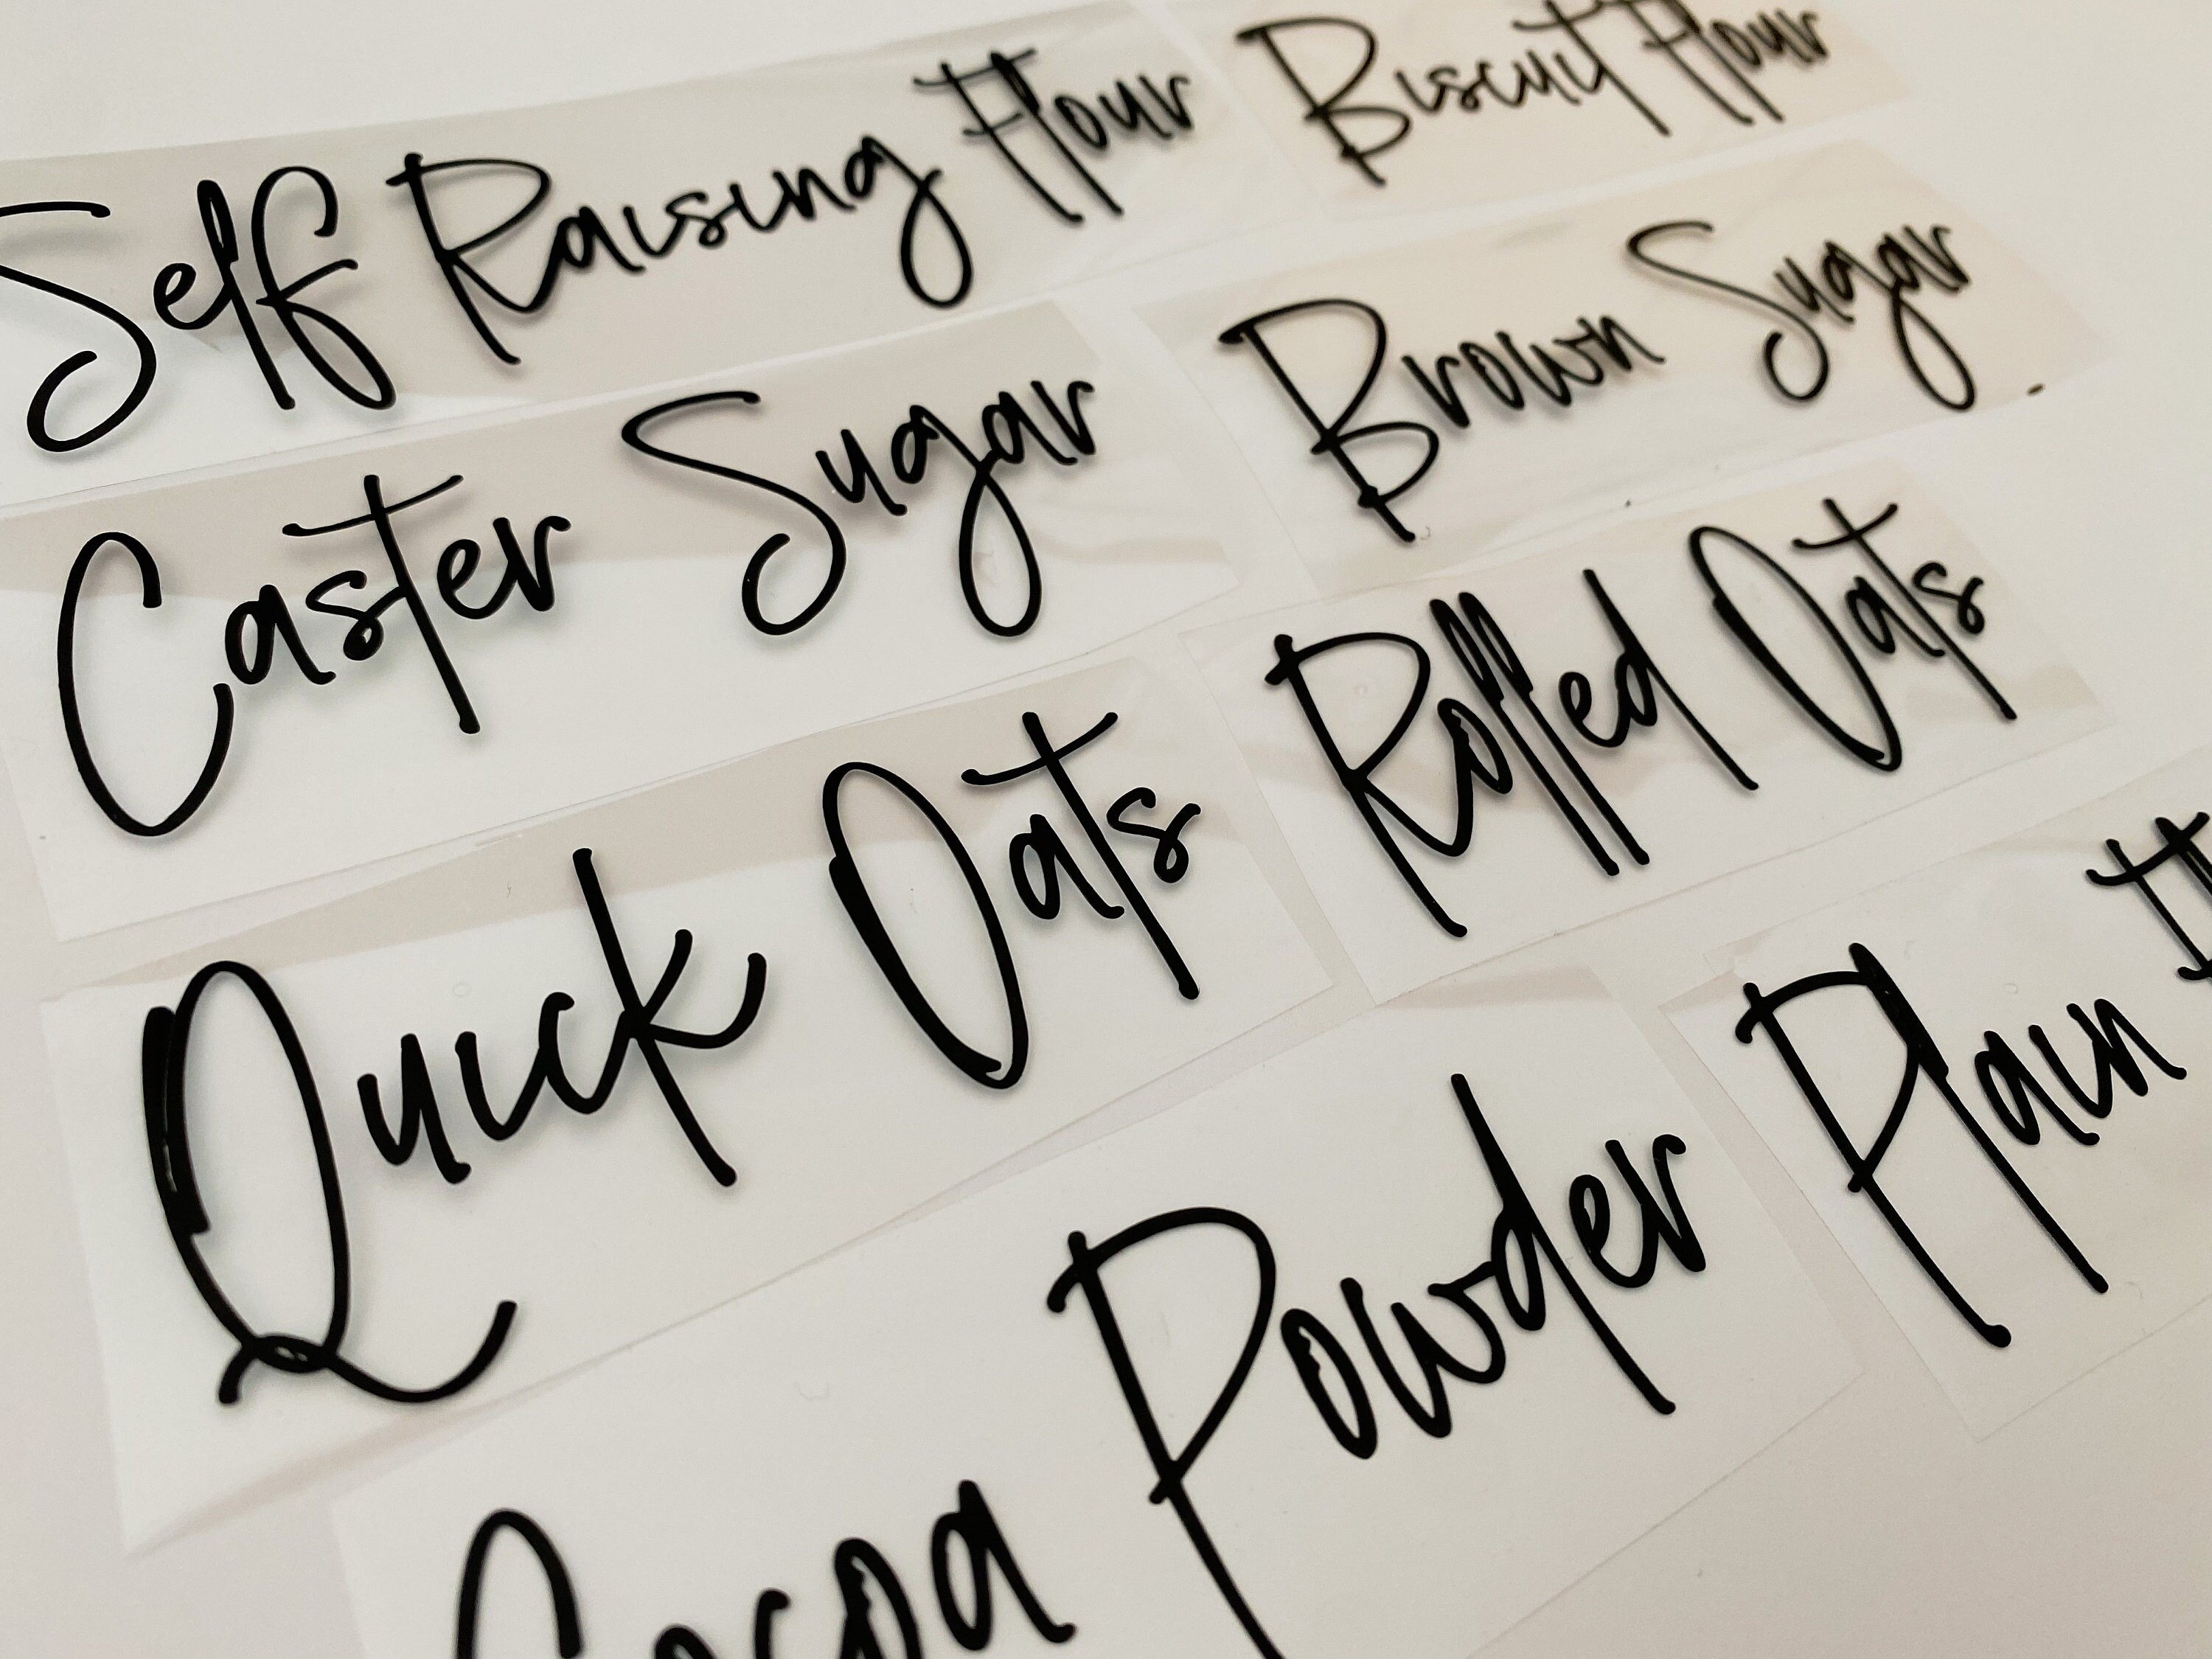 Self Raising Flour
Biscuit Flour
Caster Sugar
Brown Sugar
Quick Oats
Rolled Oats
Cocoa Powder
Plain